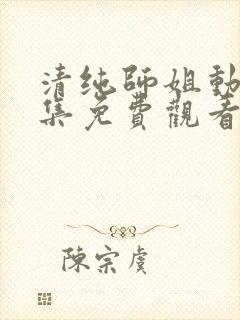 清纯師姐動
集免費觀看
陳宗虞